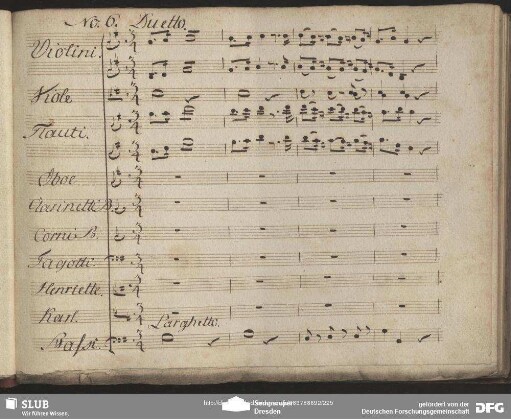 No. 6. Duetto.
Violini.
Viole
Flauti.
Oboe
Clarinetti B.
Corni B.
Fagotti.
Henriette.
Karl.
Larghetto.
Bassi.
SLUB
Wir führen Wissen.
Dresden
gefördert von der
Deutschen Forschungsgemeinschaft
DFG